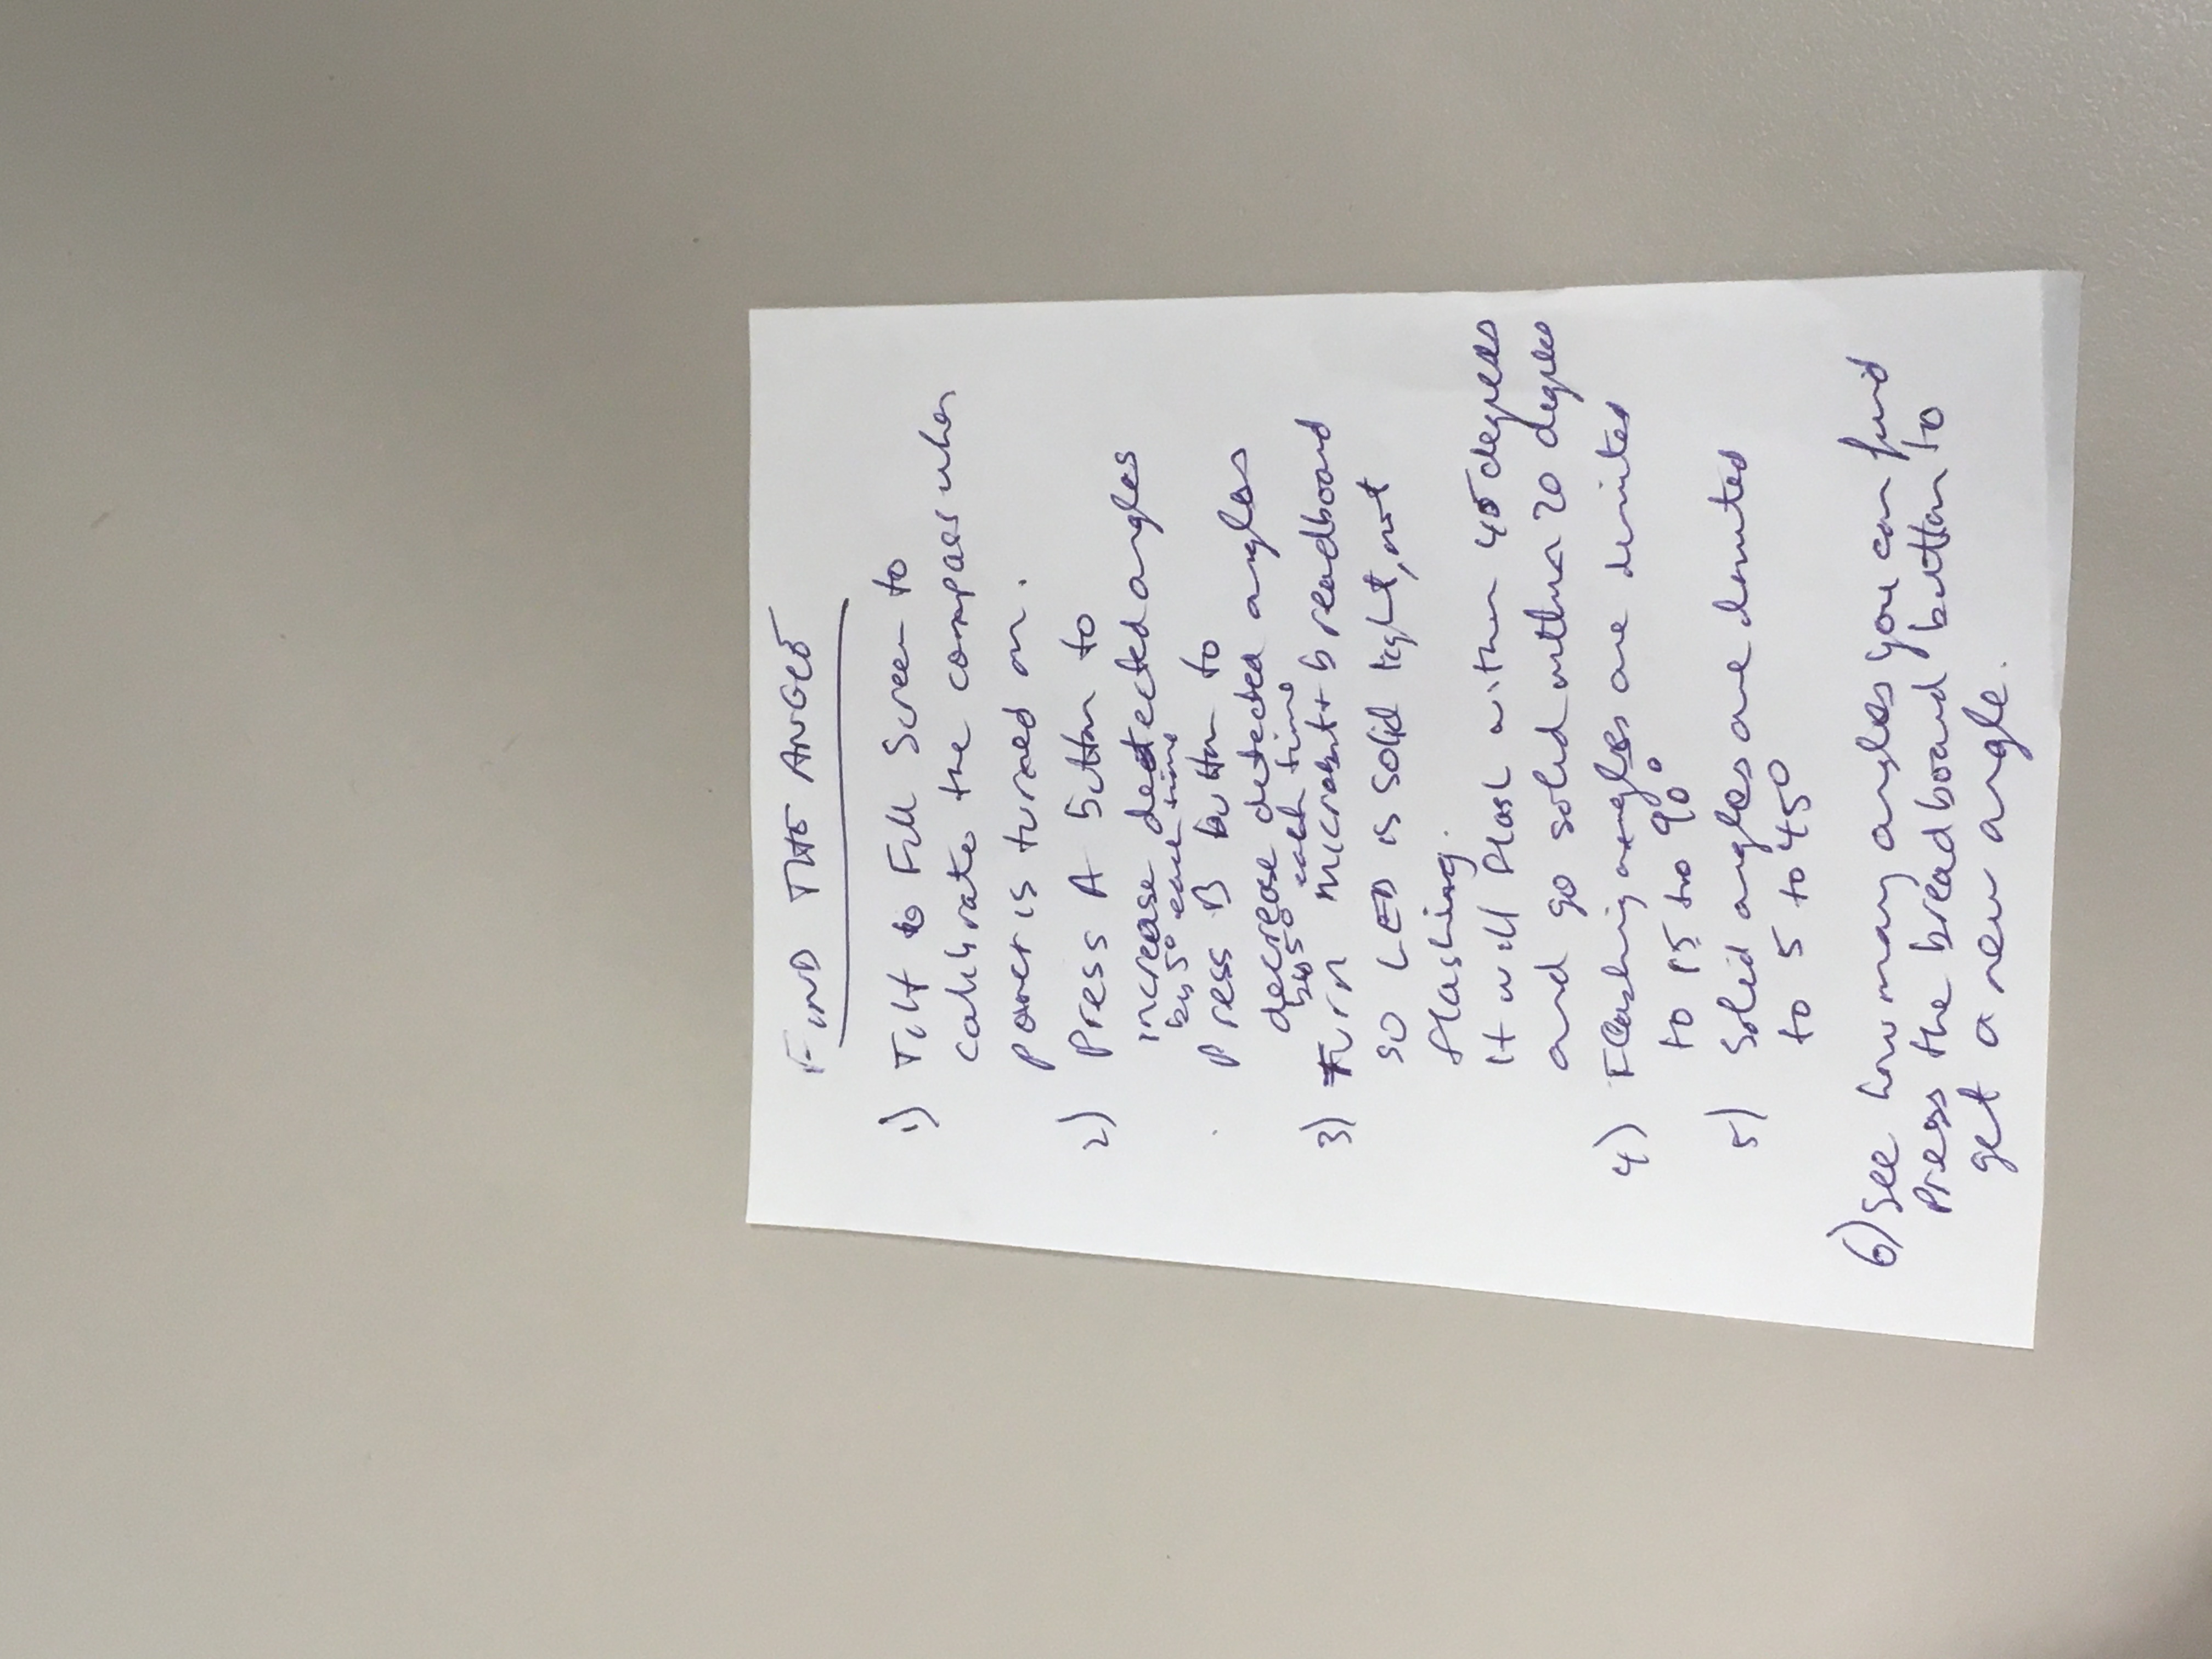 FIND THE ANGLE
1) Tilt to Fill Screen to
calibrate the compass when
power is turned on.
2) Press A button to
increase detected angles
by 5° each time
Press B button to
decrease detected angles
by 5° each time
3) Turn microbit + breadboard
so LED is solid light, not
flashing.
It will flash within 45 degrees
and go solid within 20 degrees
4) Flashing angles are limited
to 15 to 90°
5) Solid angles are limited
to 5 to 45°
6) See how many angles you can find
Press the breadboard button to
get a new angle.